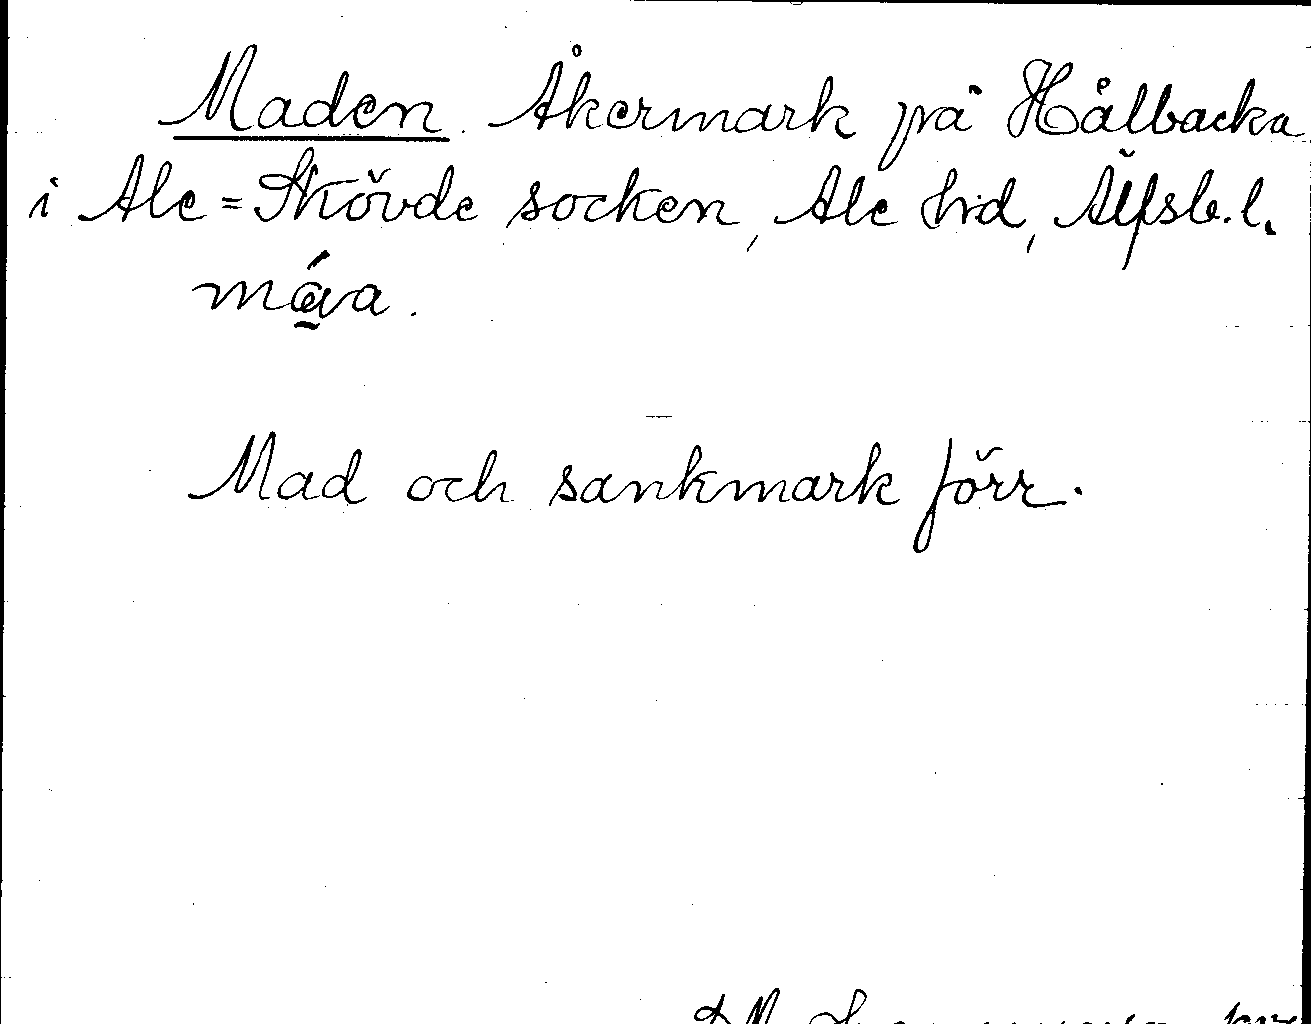 Maden. Åkermark på Hålbacka
i Ale=Skövde socken, Ale hrd, Älfsb.l.
Mad och sankmark förr.